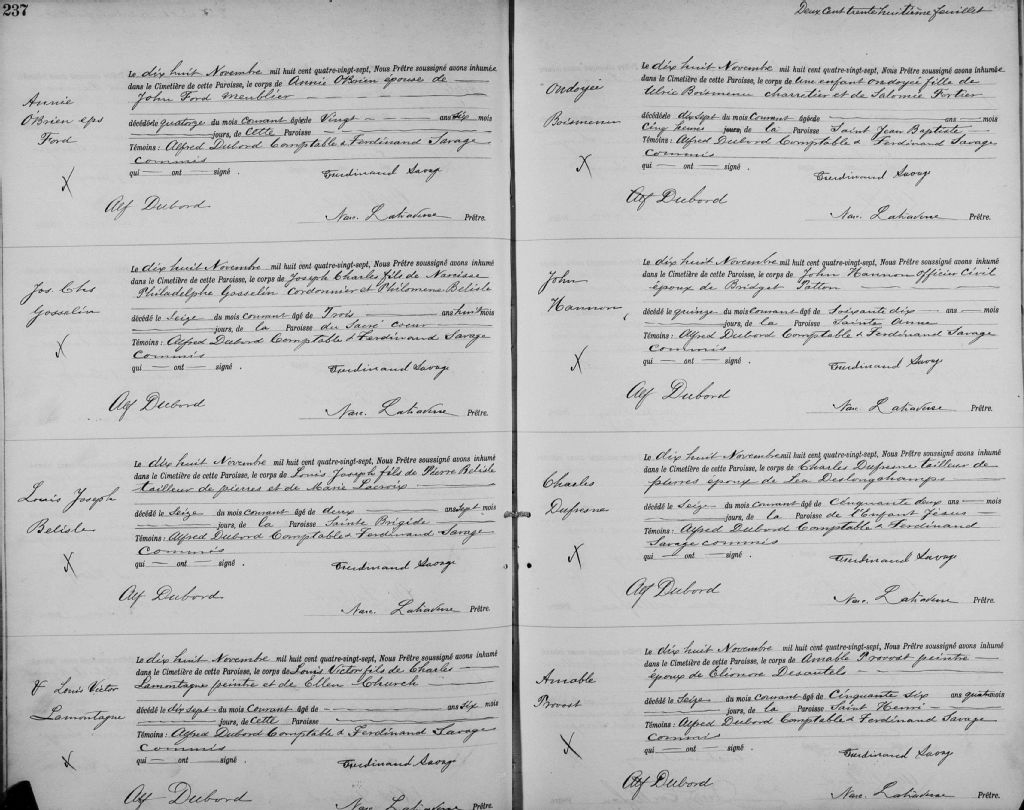 237
Annie
O'Brien eps
Ford
Le dix huit Novembre mil huit cent quatre-vingt-sept, Nous Prêtre soussigné avons inhumée
dans le Cimetière de cette Paroisse, le corps de Annie O'Brien épouse de
John Ford meublier
décédée le quatorze du mois courant âgée de Vingt ans six mois
jours, de Cette Paroisse
Témoins : Alfred Dubord Comptable & Ferdinand Savage
commis
qui — ont — signé .
Ferdinand Savage
Alf Dubord
Narc. Prêtre.
Jos. Chs
Gosselin
Le dix huit Novembre mil huit cent quatre-vingt-sept, Nous Prêtre soussigné avons inhumé
dans le Cimetière de cette Paroisse, le corps de Joseph Charles fils de Narcisse
Philadelphe Gosselin cordonnier et Philomene Belisle
décédé le Seize du mois courant âgé de Trois ans huit mois
jours, de la Paroisse du Sacré coeur
Témoins : Alfred Dubord Comptable & Ferdinand Savage
commis
qui — ont — signé .
Ferdinand Savage
Alf Dubord
Narc. Prêtre.
Louis Joseph
Belisle
Le dix huit Novembre mil huit cent quatre-vingt-sept, Nous Prêtre soussigné avons inhumé
dans le Cimetière de cette Paroisse, le corps de Louis Joseph fils de Pierre Belisle
tailleur de pierres et de Marie Lacroix
décédé le Seize du mois courant âgé de deux ans Sept mois
jours, de la Paroisse Sainte Brigide
Témoins : Alfred Dubord Comptable & Ferdinand Savage
commis
qui — ont — signé .
Ferdinand Savage
Alf Dubord
Narc. Prêtre.
Louis Victor
Lamontagne
Le dix huit Novembre mil huit cent quatre-vingt-sept, Nous Prêtre soussigné avons inhumé
dans le Cimetière de cette Paroisse, le corps de Louis Victor fils de Charles
Lamontagne peintre et de Ellen Church
décédé le dix sept du mois courant âgé de — ans six mois
jours, de Cette Paroisse
Témoins : Alfred Dubord Comptable & Ferdinand Savage
commis
qui — ont — signé .
Ferdinand Savage
Alf Dubord
Narc. Prêtre.
Deux cent trente huitième feuillet
Ondoyée
Boismenu
Le dix huit Novembre mil huit cent quatre-vingt-sept, Nous Prêtre soussigné avons inhumée
dans le Cimetière de cette Paroisse, le corps de Une enfant ondoyée fille de
Ulric Boismenu charretier et de Salomie Fortier
décédée le dix Sept du mois Courant âgée de — ans — mois
Cinq heures jours, de la Paroisse Saint Jean Baptiste
Témoins : Alfred Dubord Comptable & Ferdinand Savage
commis
qui — ont — signé .
Ferdinand Savage
Alf Dubord
Narc. Prêtre.
John
Hannon
Le dix huit Novembre mil huit cent quatre-vingt-sept, Nous Prêtre soussigné avons inhumé
dans le Cimetière de cette Paroisse, le corps de John Hannon Officier Civil
époux de Bridget Patton
décédé le quinze du mois courant âgé de Soixante dix ans — mois
jours, de la Paroisse Sainte Anne
Témoins : Alfred Dubord Comptable & Ferdinand Savage
Commis
qui — ont — signé .
Ferdinand Savage
Alf Dubord
Narc. Prêtre.
Charles
Dufresne
Le dix huit Novembre mil huit cent quatre-vingt-sept, Nous Prêtre soussigné avons inhumé
dans le Cimetière de cette Paroisse, le corps de Charles Dufresne tailleur de
pierres époux de Lea Deslongchamps
décédé le Seize du mois courant âgé de Cinquante deux ans — mois
jours, de la Paroisse de l'Enfant Jésus
Témoins : Alfred Dubord Comptable & Ferdinand
Savage commis
qui — ont — signé .
Ferdinand Savage
Alf Dubord
Narc. Prêtre.
Amable
Provost
Le dix huit Novembre mil huit cent quatre-vingt-sept, Nous Prêtre soussigné avons inhumé
dans le Cimetière de cette Paroisse, le corps de Amable Provost peintre
époux de Eléonore Desautels
décédé le Seize du mois courant âgé de Cinquante Six ans quatre mois
jours, de la Paroisse Saint Henri
Témoins : Alfred Dubord Comptable & Ferdinand Savage
commis
qui — ont — signé .
Ferdinand Savage
Alf Dubord
Narc. Prêtre.